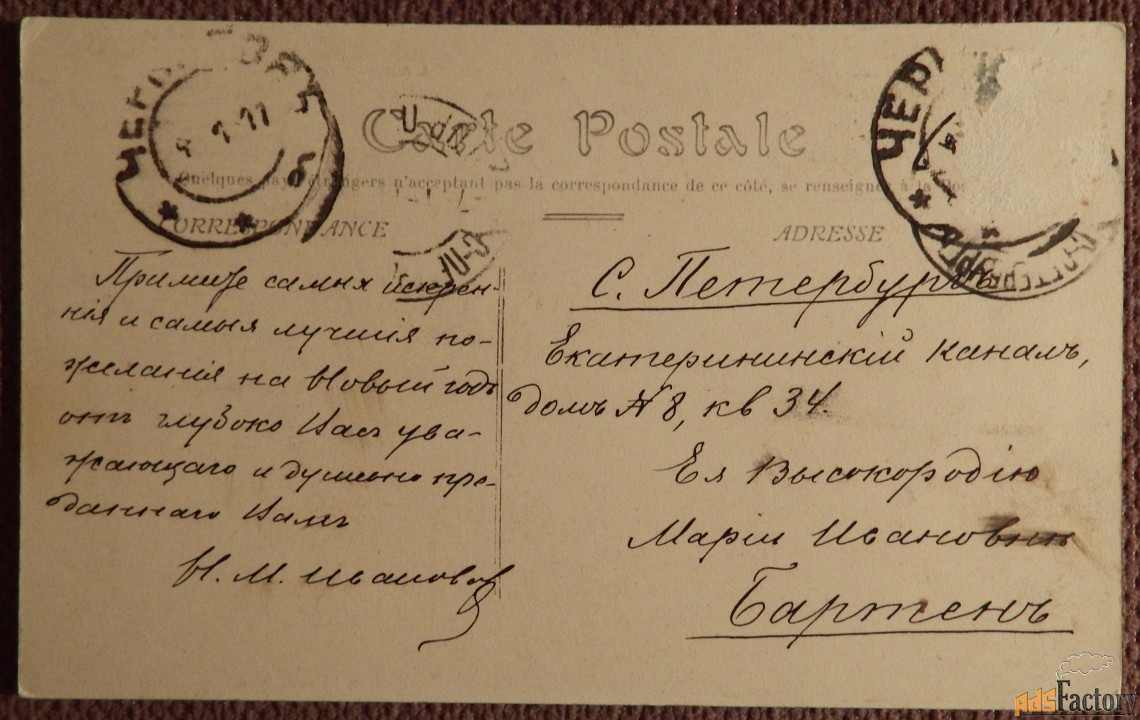 Carte Postale
Quelques pays étrangers n'acceptant pas la correspondance de ce côté, se renseigner à la
CORRESPONDANCE
ADRESSE
Примите самыя искрен-
нія и самыя лучшія по-
желанія на Новый годъ
отъ глубоко Васъ ува-
жающаго и душевно пре-
даннаго Вамъ
Н. М. Иванова
С. Петербургъ
Екатерининскій каналъ,
домъ № 8, кв 34.
Ея Высокородію
Маріи Ивановнѣ
Бартенъ
1-11
6
ЧЕР
adsFactory